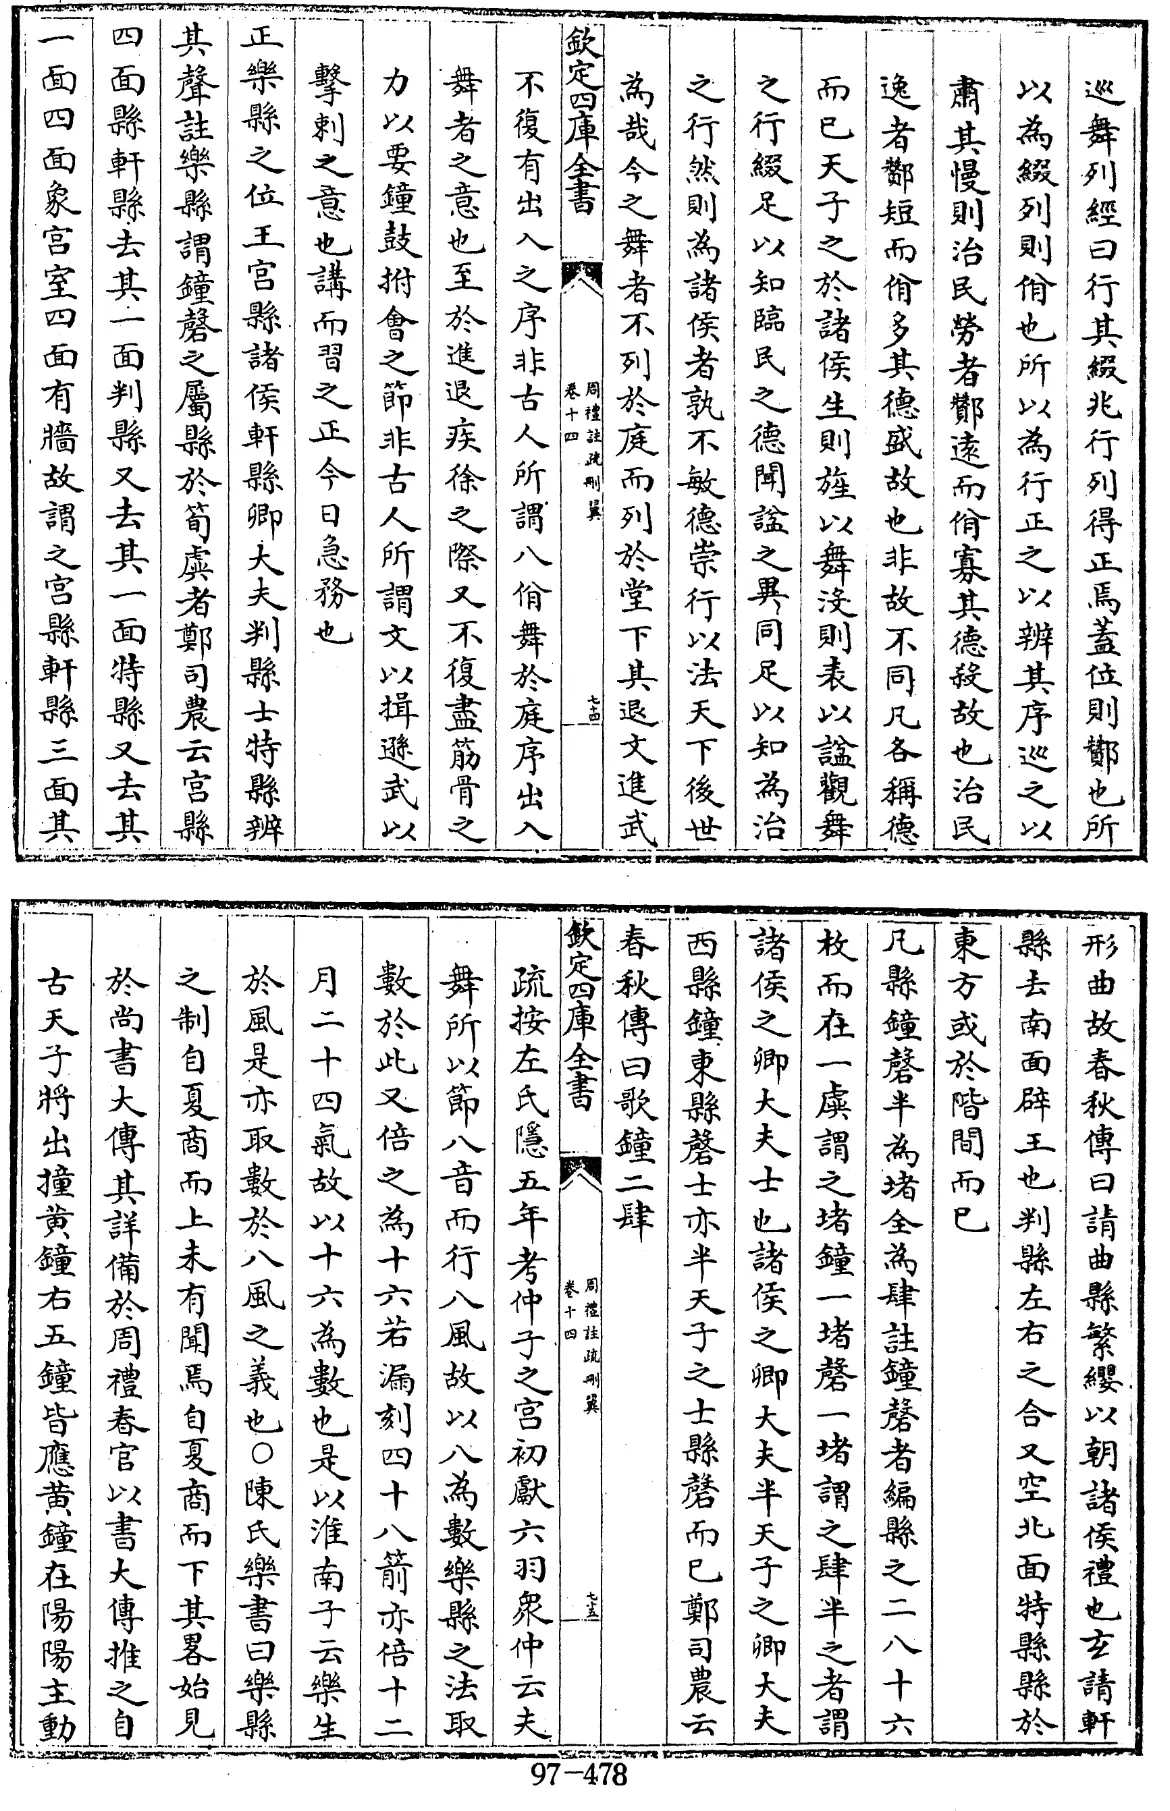 巡舞列經曰行其綴兆行列得正焉蓋位則酇也所
以為綴列則佾也所以為行正之以辨其序巡之以
肅其慢則治民勞者酇遠而佾寡其德殺故也治民
逸者酇短而佾多其德盛故也非故不同凡各稱德
而已天子之於諸侯生則旌以舞没則表以諡觀舞
之行綴足以知臨民之德聞諡之異同足以知為治
之行然則為諸侯者孰不敏德崇行以法天下後世
為哉今之舞者不列於庭而列於堂下其退文進武
欽定四庫全書
周禮註疏刪翼
卷十四
七十四
不復有出入之序非古人所謂八佾舞於庭序出入
舞者之意也至於進退疾徐之際又不復盡筋骨之
力以要鐘鼓拊會之節非古人所謂文以揖遜武以
擊刺之意也講而習之正今日急務也
正樂縣之位王宮縣諸侯軒縣卿大夫判縣士特縣辨
其聲註樂縣謂鐘磬之屬縣於筍虡者鄭司農云宮縣
四面縣軒縣去其一面判縣又去其一面特縣又去其
一面四面象宮室四面有牆故謂之宮縣軒縣三面其
形曲故春秋傳曰請曲縣繁纓以朝諸侯禮也玄請軒
縣去南面辟王也判縣左右之合又空北面特縣縣於
東方或於階間而已
凡縣鐘磬半為堵全為肆註鐘磬者編縣之二八十六
枚而在一虡謂之堵鐘一堵磬一堵謂之肆半之者謂
諸侯之卿大夫士也諸侯之卿大夫半天子之卿大夫
西縣鐘東縣磬士亦半天子之士縣磬而已鄭司農云
春秋傳曰歌鐘二肆
欽定四庫全書
周禮註疏刪翼
卷十四
七十五
疏按左氏隱五年考仲子之宮初獻六羽衆仲云夫
舞所以節八音而行八風故以八為數樂縣之法取
數於此又倍之為十六若漏刻四十八箭亦倍十二
月二十四氣故以十六為數也是以淮南子云樂生
於風是亦取數於八風之義也○陳氏樂書曰樂縣
之制自夏商而上未有聞焉自夏商而下其畧始見
於尚書大傳其詳備於周禮春官以書大傳推之自
古天子將出撞黄鐘右五鐘皆應黄鐘在陽陽主動
97-478